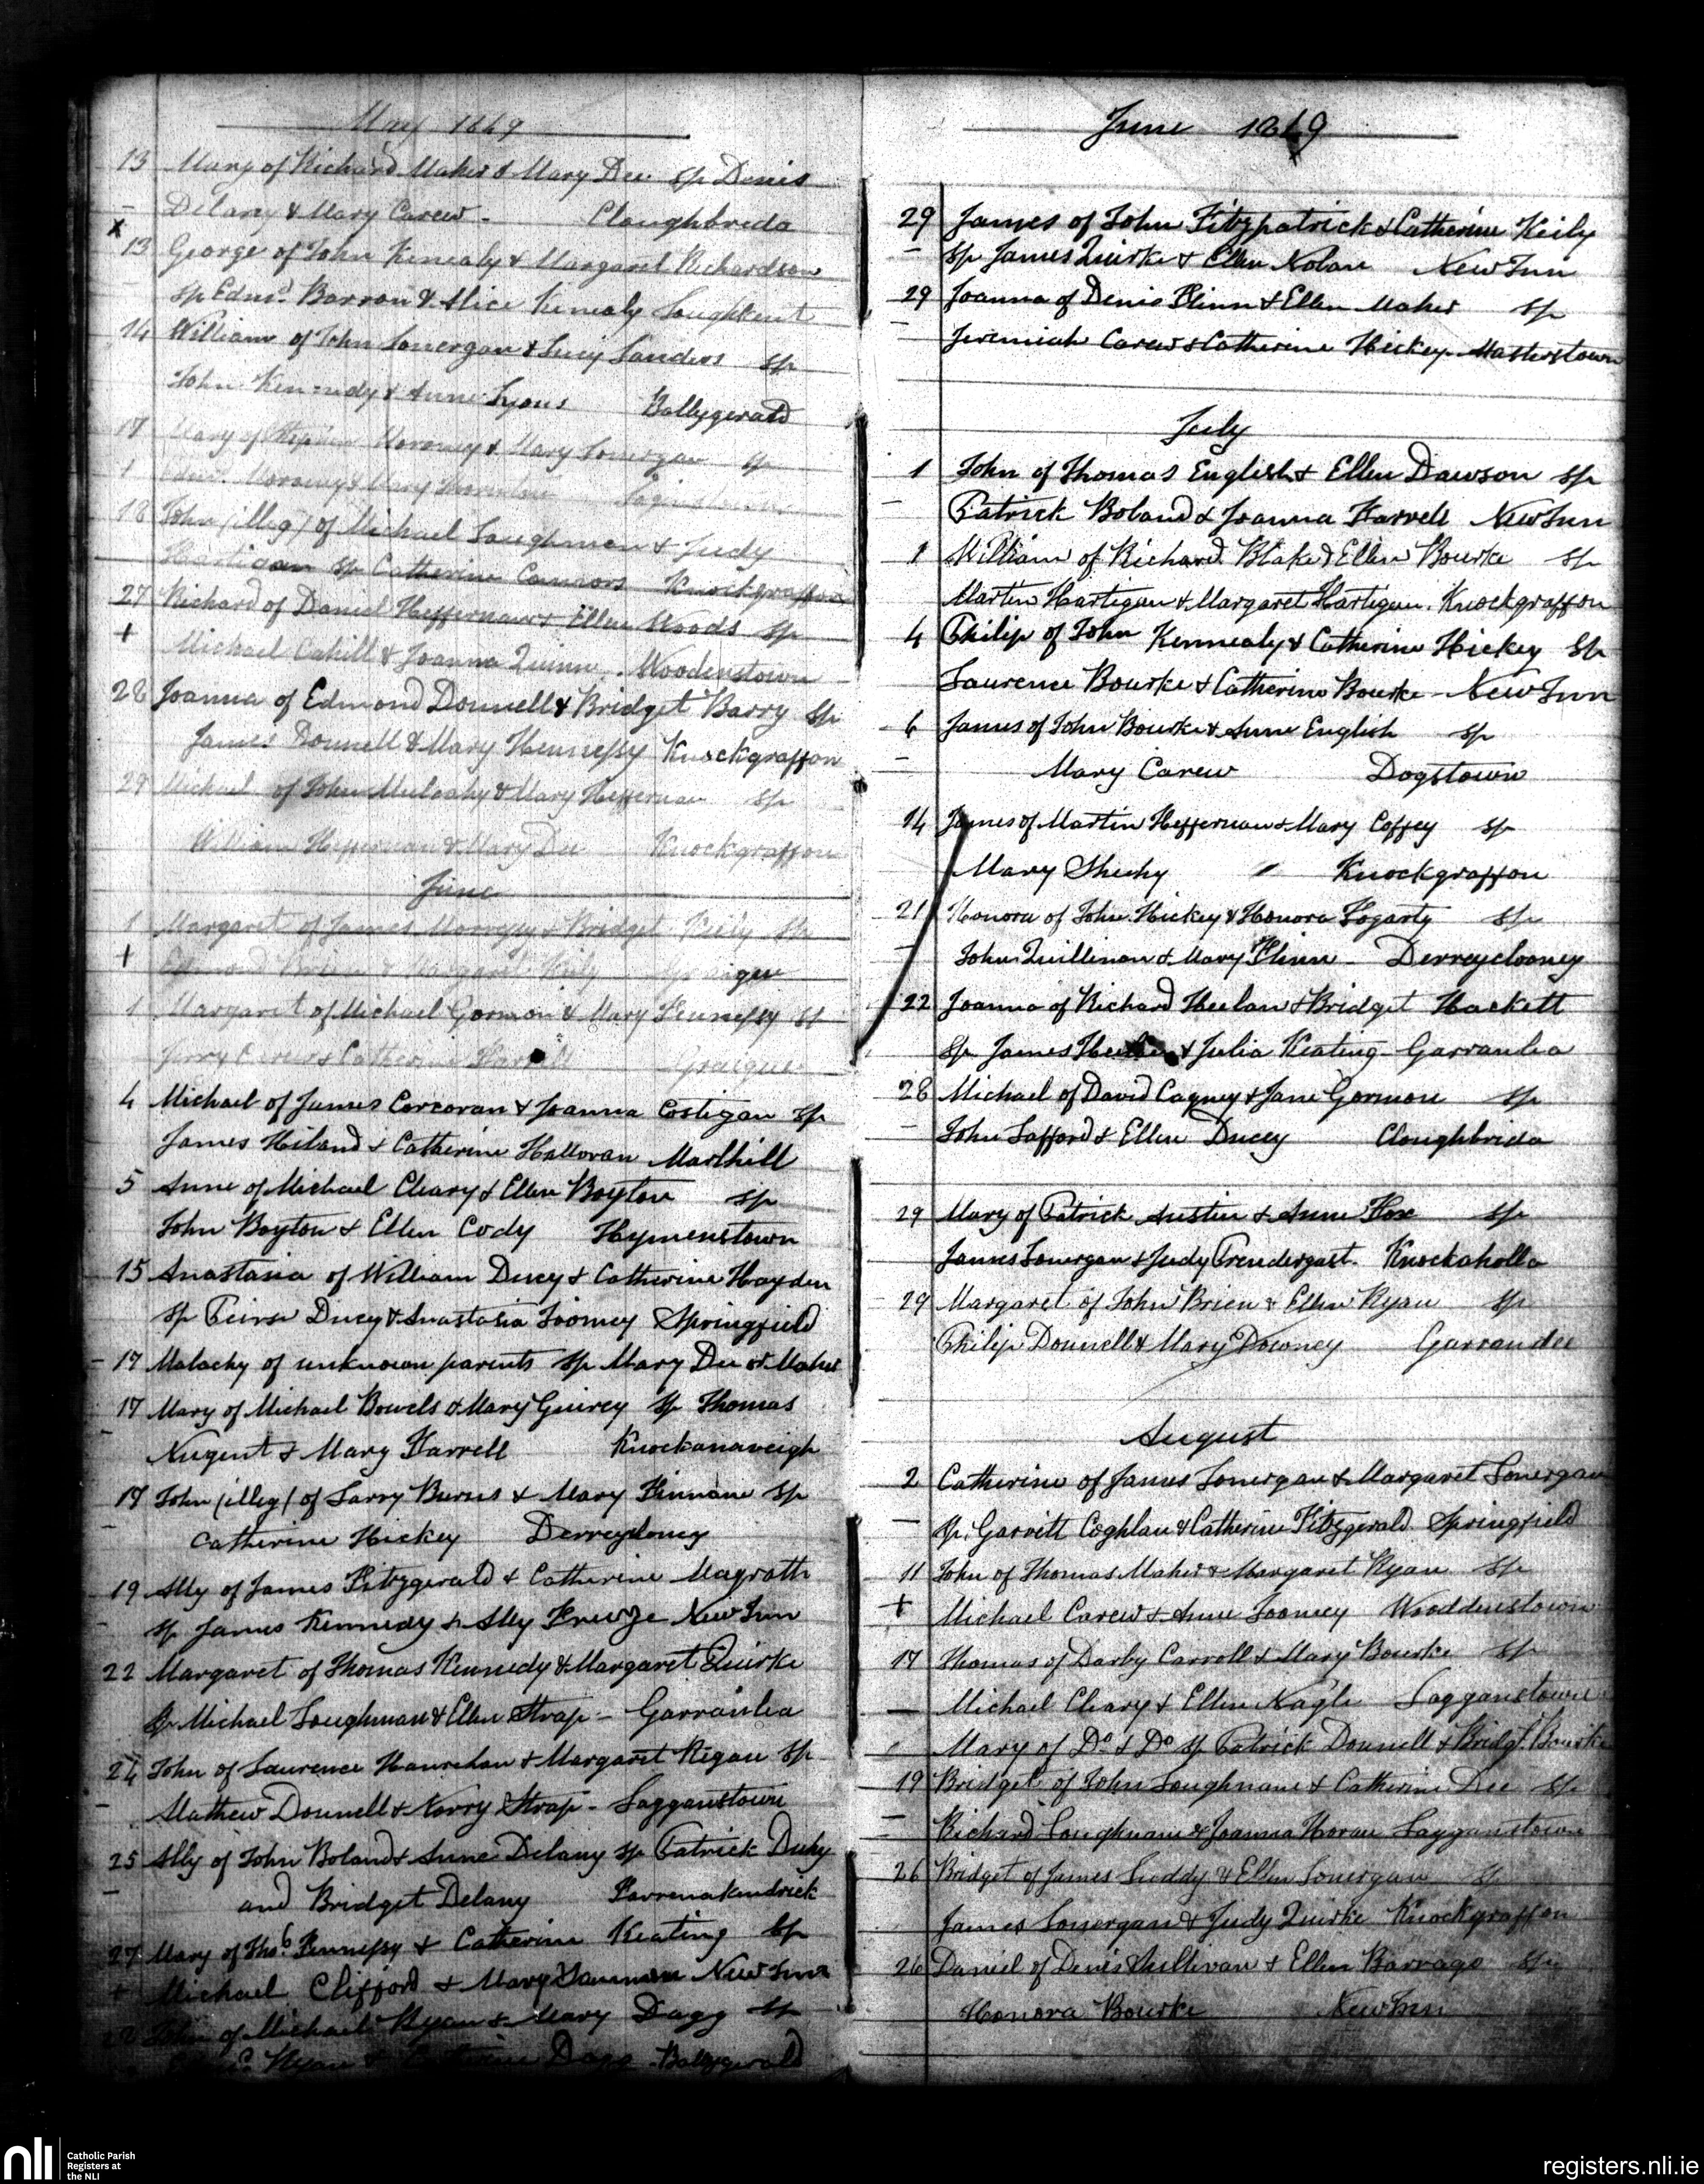 May 1869
13 Mary of Richard Maher & Mary Dee sp Denis
Delany & Mary Carew - Cloughbreda
x
13 George of John Kenealy & Margaret Richardson
sp Edmd Barron & Alice Kenealy Loughkent
14 William of John Lonergan & Lucy Sanders sp
John Kennedy & Anne Lyons Ballygerald
17 Mary of Stephen Moroney & Mary Lonergan sp
Moroney & Mary
18 John (illeg) of Michael Loughman & Judy
Hartigan sp Catherine Connors Knockgraffon
27 Richard of Daniel Heffernan & Ellen Woods sp
+ Michael Cahill & Joanna Quinn. Woodenstown
28 Joanna of Edmond Donnell & Bridget Barry sp
James Donnell & Mary Hennessy Knockgraffon
29 Michael of John Mulcahy & Mary Heffernan sp
William Heffernan & Mary Dee Knockgraffon
June
1 Margaret of James & Bridget Kiely sp
+ & Margaret Kiely
1 Margaret of Michael Gorman & Mary Fennessy sp
Jerry Carew & Catherine Farrell Graigue
4 Michael of James Corcoran & Joanna Costigan sp
James Hiland & Catherine Halloran Marlhill
5 Anne of Michael Cleary & Ellen Boyton sp
John Boyton & Ellen Cody Hymenstown
15 Anastasia of William Ducy & Catherine Hayden
sp Peirse Ducy & Anastasia Toomey Springfield
17 Malachy of unknown parents sp Mary Dee or Maher
17 Mary of Michael Bowels & Mary Guirey sp Thomas
Nugent & Mary Farrell Knockanaveigh
17 John (illeg) of Larry Burns & Mary Finnane sp
Catherine Hickey Derrycloney
19 Ally of James Fitzgerald & Catherine Magrath
sp James Kennedy & Ally Prenge New Inn
22 Margaret of Thomas Kennedy & Margaret Quirke
sp Michael Loughman & Ellen Strap - Garranlea
24 John of Laurence Hanrahan & Margaret Regan sp
Mathew Donnell & Norry Strap - Lagganstown
25 Ally of John Boland & Anne Delany sp Patrick Duhy
and Bridget Delany Farrenakindrick
27 Mary of Thos Fennessy & Catherine Keating sp
+ Michael Clifford & Mary New Inn
28 John of Michael Ryan & Mary Dagg sp
Ryan & Catherine Dagg - Ballygerald
June 1869
29 James of John Fitzpatrick & Catherine Keily
sp James Quirke & Ellen Nolan New Inn
29 Joanna of Denis Flinn & Ellen Maher sp
Jeremiah Carew & Catherine Hickey - Masterstown
July
1 John of Thomas English & Ellen Dawson sp
Patrick Boland & Joanna Farrell New Inn
1 William of Richard Blake & Ellen Bourke sp
Martin Hartigan & Margaret Hartigan. Knockgraffon
4 Philip of John Kennealy & Catherine Hickey sp
Laurence Bourke & Catherine Bourke - New Inn
6 James of John Bourke & Anne English sp
Mary Carew Dogstown
14 James of Martin Heffernan & Mary Coffey sp
Mary Sheehy " Knockgraffon
21 Honora of John Hickey & Honora Fogarty sp
John Quillinan & Mary Flinn - Derreyclooney
22 Joanna of Richard Heelan & Bridget Hackett
sp James Heelan & Julia Keating - Garranlea
28 Michael of David Cagney & Jane Gorman sp
John Lafford & Ellen Ducey Cloughbrida
29 Mary of Patrick Austin & Anne Fox sp
James Lonergan & Judy Prendergast. Knockaholla
29 Margaret of John Brien & Ellen Ryan sp
Philip Donnell & Mary Downey Garrandee
August
2 Catherine of James Lonergan & Margaret Lonergan
sp. Garrett Coghlan & Catherine Fitzgerald Springfield
11 John of Thomas Maher & Margaret Ryan sp
+ Michael Carew & Anne Toomey Woodenstown
17 Thomas of Darby Carroll & Mary Bourke sp
Michael Cleary & Ellen Nagle Lagganstown
Mary of Do & Do sp Patrick Donnell & Bridgt Bourke
19 Bridget of John Loughnane & Catherine Dee sp
Richard Loughnane & Joanna Horan Lagganstown
26 Bridget of James Luddy & Ellen Lonergan sp
James Lonergan & Judy Quirke Knockgraffon
26 Daniel of Denis Sullivan & Ellen Barrago sp
Honora Bourke New Inn
nli Catholic Parish
Registers at
the NLI
registers.nli.ie